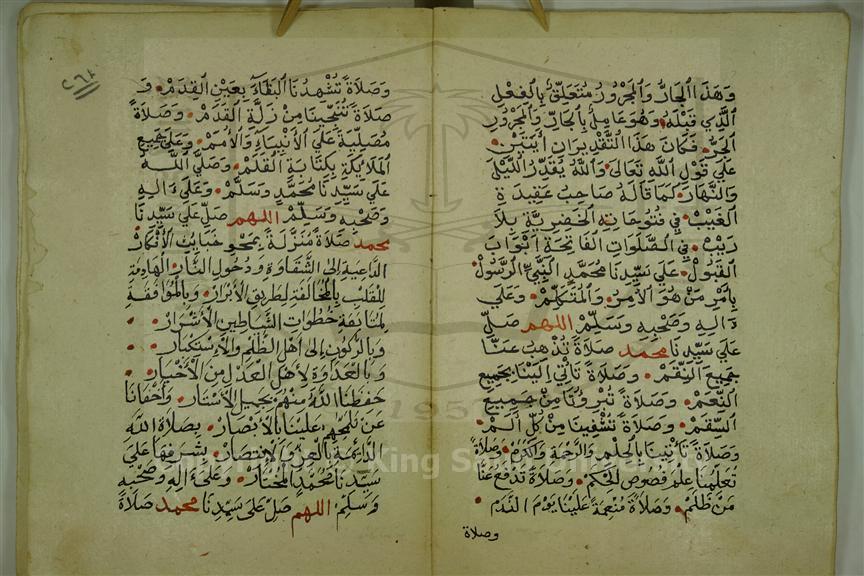 وَهَذَا الجَارُّ وَالمَجْرُورُ مُتَعَلِّقٌ بِالفِعْلِ
الَّذِي قَبْلَهُ وَهُوَ عَامِلٌ بِالجَارِّ وَالمَجْرُورِ
الجَرَّ فَكَانَ هَذَا التَّقْدِيرَانِ
عَلَى قَوْلِ اللَّهِ تَعَالَى وَاللَّهُ يُقَدِّرُ اللَّيْلَ
وَالنَّهَارَ كَمَا قَالَهُ صَاحِبُ عَقِيدَةِ
الغَيْبِ فِي فُتُوحَاتِهِ الخَضِرِيَّةِ بِلَا
رَيْبٍ فِي الصَّلَوَاتِ الفَاتِحَةِ أَبْوَابَ
القَبُولِ عَلَى سَيِّدِنَا مُحَمَّدٍ النَّبِيِّ الرَّسُولِ
بِأَمْرِ مَنْ هُوَ الآمِرُ وَالمُتَكَلِّمُ وَعَلَى
ءَالِهِ وَصَحْبِهِ وَسَلِّمْ اللهم صَلِّ
عَلَى سَيِّدِنَا محمد صَلَاةً تُذْهِبُ عَنَّا
جَمِيعَ النِّقَمْ وَصَلَاةً تَأْتِي إِلَيْنَا بِجَمِيعِ
النِّعَمْ وَصَلَاةً تُبْرِئُنَا مِنْ جَمِيعِ
السَّقَمْ وَصَلَاةً تَشْفِينَا مِنْ كُلِّ أَلَمْ
وَصَلَاةً تَأْتِينَا بِالحِلْمِ وَالرَّحْمَةِ وَالكَرَمْ وَصَلَاةً
تُعَلِّمُنَا عِلْمَ فُصُوصِ الحِكَمْ وَصَلَاةً تَدْفَعُ عَنَّا
مَنْ ظَلَمْ وَصَلَاةً مُنْعِمَةً عَلَيْنَا يَوْمَ النَّدَمْ
وصلاة
٢٦٨
وَصَلَاةً تُشْهِدُنَا البَقَاءَ بِعَيْنِ القِدَمْ وَ
صَلَاةً تُنَجِّينَا مِنْ زَلَّةِ القَدَمْ وَصَلَاةً
مُصَلِّيَةً عَلَى الأَنْبِيَاءِ وَالأُمَمْ وَعَلَى جَمِيعِ
المَلَائِكَةِ بِكِتَابَةِ القَلَمْ وَصَلَّى اللَّهُ
عَلَى سَيِّدِنَا مُحَمَّدٍ وَسَلَّمْ وَعَلَى ءَالِهِ
وَصَحْبِهِ وَسَلِّمْ اللهم صَلِّ عَلَى سَيِّدِنَا
محمد صَلَاةً مُنَزَّلَةً بِمَحْوِ خَبَايِثِ الأَفْكَارْ
الدَّاعِيَةِ إِلَى الشَّقَاوَةِ وَدُخُولِ النَّارْ الهَادِمَةِ
لِلْقَلْبِ بِالمُخَالَفَةِ لِطَرِيقِ الأَبْرَارْ وَبِالمُوَافَقَةِ
لِمُتَابَعَةِ خُطُوَاتِ الشَّيَاطِينِ الأَشْرَارْ
وَبِالرُّكُونِ إِلَى أَهْلِ الظُّلْمِ وَالاِسْتِكْبَارْ
وَبِالعَدَاوَةِ لِأَهْلِ العَدْلِ مِنَ الأَخْيَارْ
حَفِظَنَا اللَّهُ مِنْهُمْ بِجَمِيلِ الأَسْتَارْ وَأَخْفَانَا
عَنْ عَلَيْنَا بِالأَنْصَارْ بِصَلَاةِ اللَّهِ
الدَّائِمَةِ بِالعِزِّ وَالاِنْتِصَارْ يُشَرِّفُهَا عَلَى
سَيِّدِنَا مُحَمَّدٍ المُخْتَارْ وَعَلَى آلِهِ وَصَحْبِهِ
وَسَلِّمْ اللهم صَلِّ عَلَى سَيِّدِنَا محمد صَلَاةً